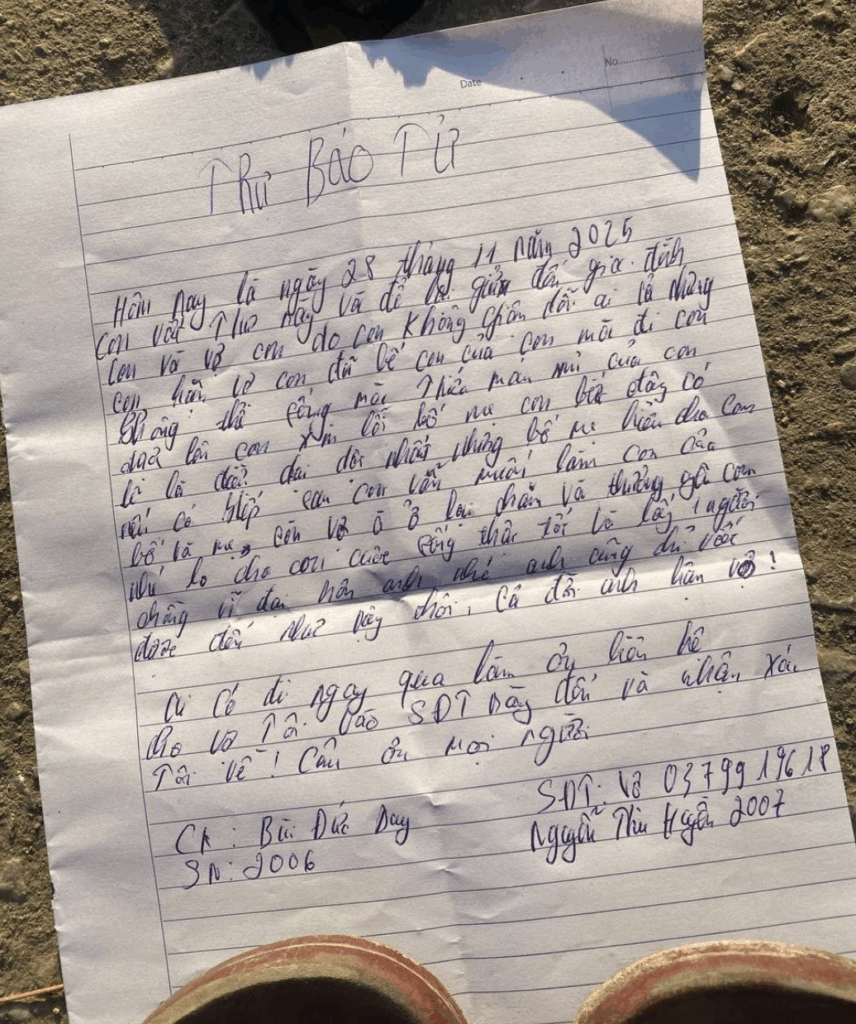 Date
No
THƯ BÁO TỬ
Hôm nay là ngày 28 tháng 11 năm 2025
con viết Thư này và để lại gửi đến gia đình
con và vợ con do con không giận dỗi ai là những
con hận vợ con, đã bế con của con mãi đi con
không thể sống mãi Thiếu man mủ của con
dưa lên con xin lỗi bố mẹ con biết đây có
lẽ là điều dại dột nhất nhưng bố mẹ hiểu cho con
nếu có kiếp sau con vẫn muốn làm con của
bố và mẹ, còn vợ ở lại chăn và thương gái con
nhé lo cho con cuộc sống thật tốt và lấy 1 người
chồng vĩ đại hơn anh nhé anh cũng chỉ với
được đến như này thôi, Cả đời anh hận vợ!
Ai có đi ngay qua làm ơn liên hệ
cho vợ Tôi vào SĐT này đến và nhận xác
Tôi về! Cảm ơn mọi người
SĐT: Vợ 0379919618
Ck: Bùi Đức Day
Nguyễn Thu Huyền 2007
SN: 2006